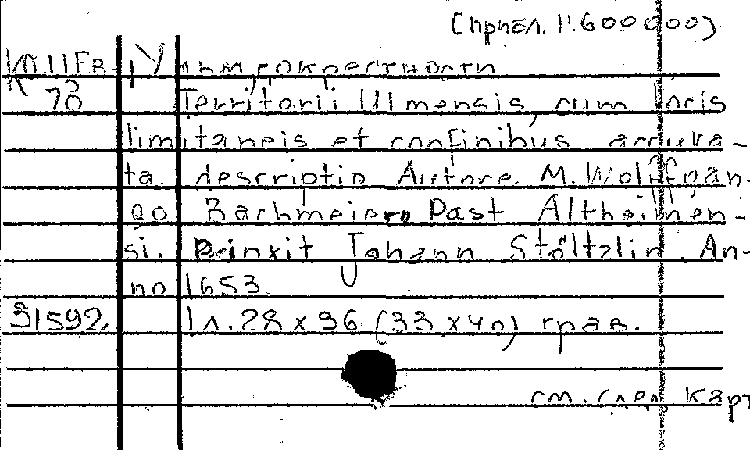 (прибл. 1:600000)
Ульм, окрестности
70 Territorii Ulmensis, cum locis
limitaneis et confinibus accura-
ta descriptio Autore M. Wolffgan-
go Bachmeiero Past Altheimen-
si. Pinxit Johann Stöltzlin. An-
no 1653.
31592. 1л. 28 x 36 (33 x 40) грав.
см. след. карт